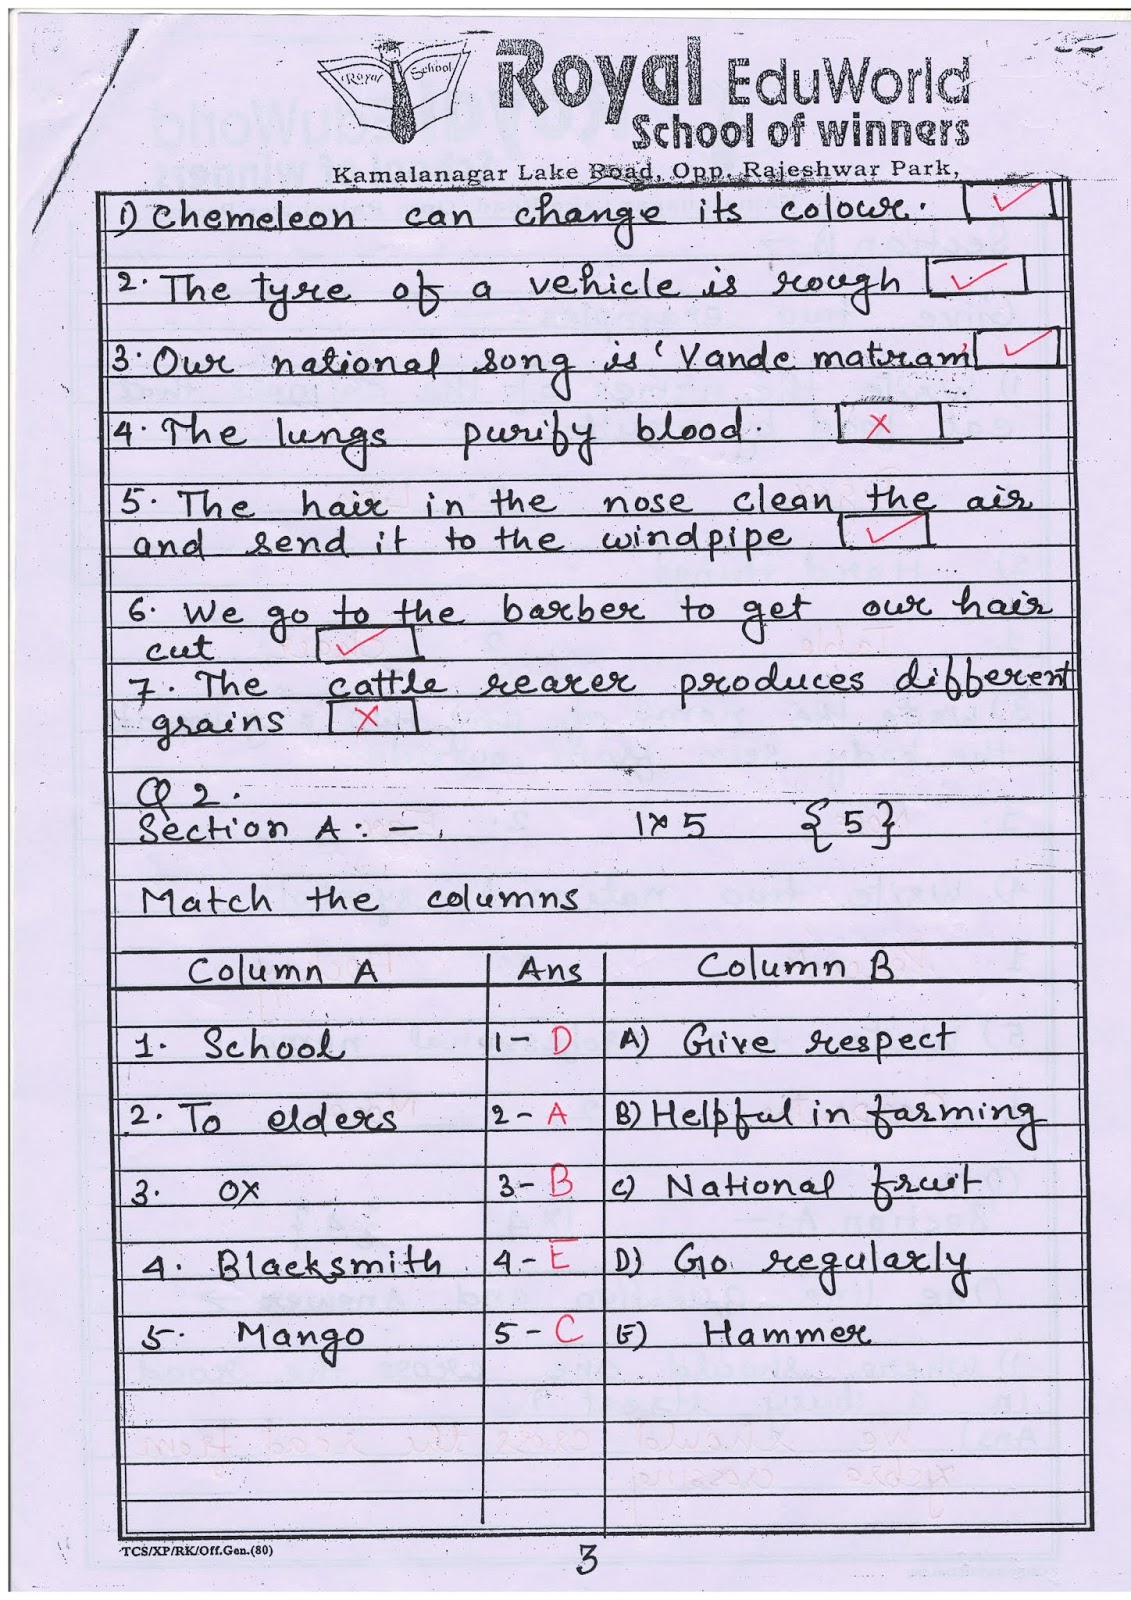 Royal School
Royal EduWorld
School of winners
Kamalanagar Lake Road, Opp. Rajeshwar Park,
1) Chemeleon can change its colour. ✓
2. The tyre of a vehicle is rough ✓
3. Our national song is 'Vande matram' ✓
4. The lungs purify blood. ✗
5. The hair in the nose clean the air
and send it to the windpipe ✓
6. We go to the barber to get our hair
cut ✓
7. The cattle rearer produces different
grains ✗
Q 2.
Section A : - . 1x5 {5}
Match the columns
Column A Ans Column B
1. School 1- D A) Give respect
2. To elders 2- A B) Helpful in farming
3. OX 3- B C) National fruit
4. Blacksmith 4- E D) Go regularly
5. Mango 5- C E) Hammer
TCS/XP/RK/Off.Gen.(80)
3